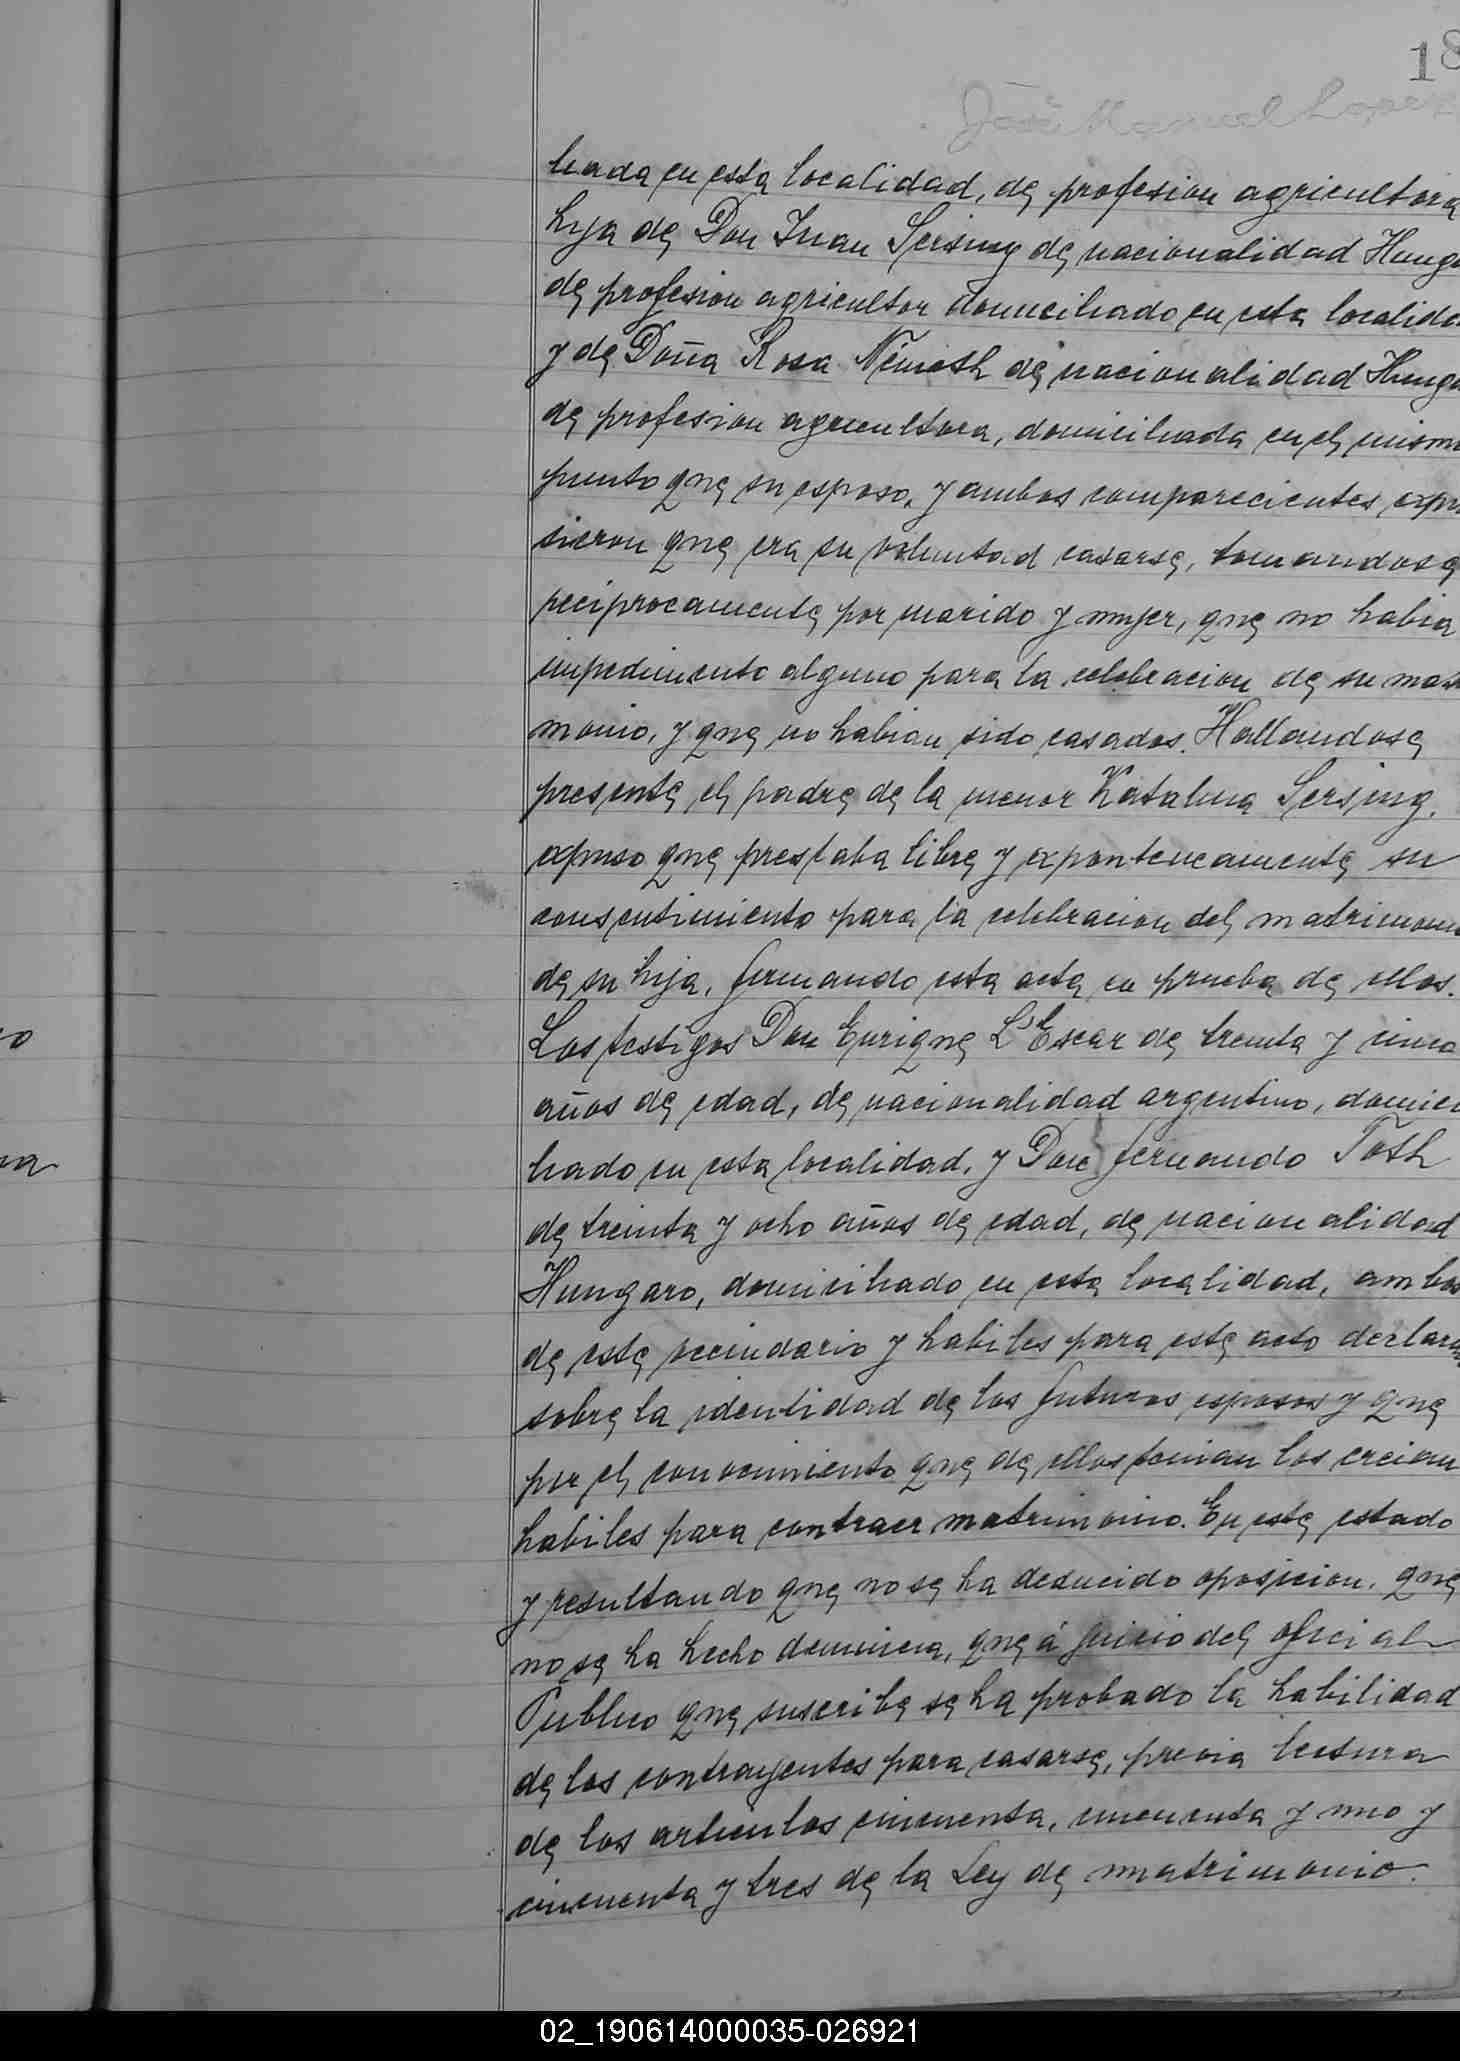 18
José Manuel Lopez
liada en esta localidad, de profesion agricultora
hija de Don Juan Sersing de nacionalidad Hunga
de profesion agricultor domiciliado en esta localida
y de Doña Rosa Németh de nacionalidad Hunga
de profesion agricultora, domiciliada en el mismo
punto que su esposo, y ambos comparecientes expu
sieron que era su voluntad casarse, tomandose
reciprocamente por marido y mujer, que no habia
impedimento alguno para la celebracion de su matri
monio, y que no habian sido casados. Hallandose
presente el padre de la menor Katalina Sersing,
expuso que prestaba libre y expontencamente su
consentimiento para la celebracion del matrimonio
de su hija, firmando esta acta en prueba de ellos.
Los testigos Don Enrique L'Escar de treinta y cinco
años de edad, de nacionalidad argentino, domici
liado en esta localidad, y Don fernando Toth
de treinta y ocho años de edad, de nacionalidad
Hungaro, domiciliado en esta localidad, ambos
de este vecindario y habiles para este acto declaran
sobre la identidad de los futuros esposos y que
por el conocimiento que de ellos tenian los creian
habiles para contraer matrimonio. En este estado
y resultando que no se ha deducido oposicion, que
no se ha hecho denuncia, que á juicio del oficial
Publico que suscribe se ha probado la habilidad
de los contrayentes para casarse, previa lectura
de los articulos cincuenta, cincuenta y uno y
cincuenta y tres de la Ley de matrimonio.
02_190614000035-026921